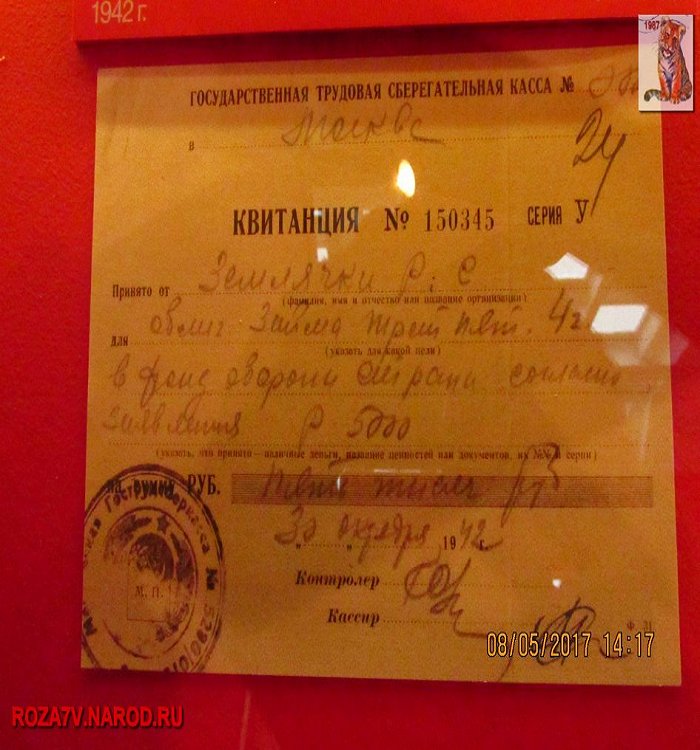 1942 г.
1987
ГОСУДАРСТВЕННАЯ ТРУДОВАЯ СБЕРЕГАТЕЛЬНАЯ КАССА №
в Москве
24
КВИТАНЦИЯ № 150345 СЕРИЯ У
Принято от Землячки Р. С
(фамилия, имя и отчество или название организации)
для облиг займа трет пят. 4г.
(указать для какой цели)
в фонд обороны страны согласно
заявления Р 5000
(указать, что принято — наличные деньги, название ценностей или документов, их №№ и серии)
на РУБ. пять тысяч
30 октября 1942 г.
Контролер
М. П.
Кассир
Ф. 31
Гострудсберкасса № 5290
08/05/2017 14:17
ROZA7V.NAROD.RU